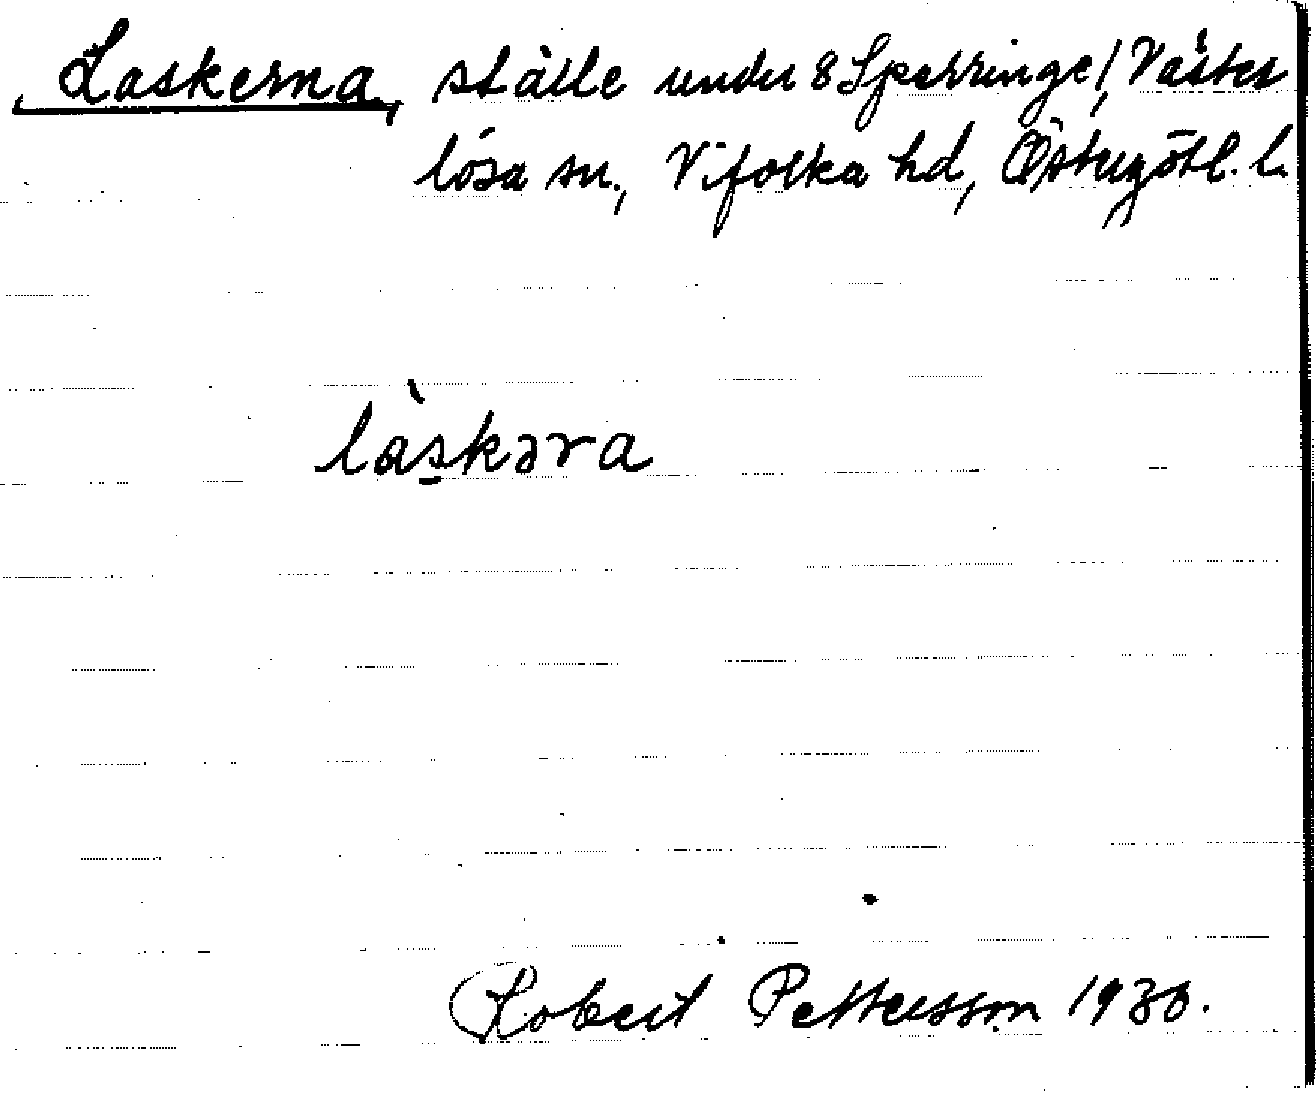 Laskerna, ställe under 8 Sperringe, Väster
lösa sn., Vifolka hd, Östergötl. l.
làskəra
Robert Pettersson 1930.